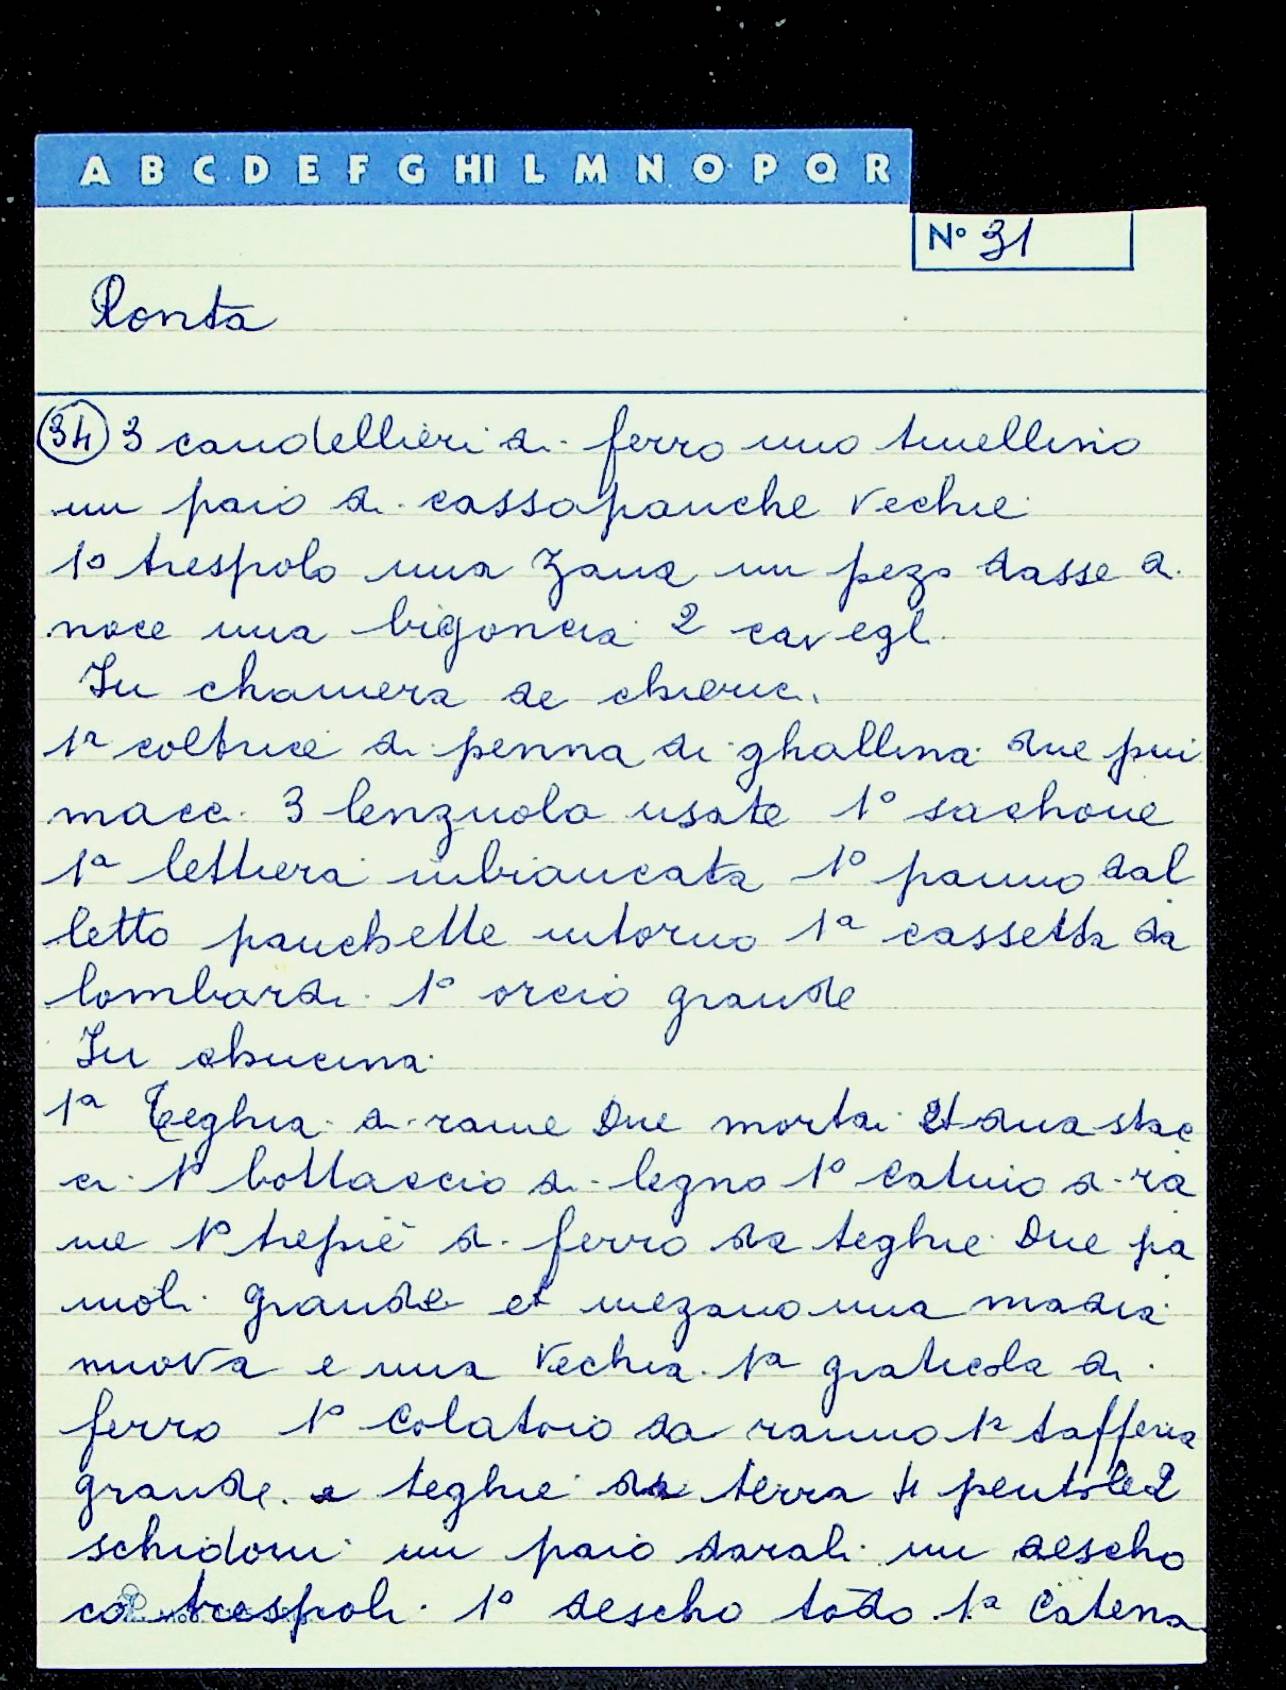 A B C D E F G HI L M N O P Q R
N° 31
Ronta
34 3 candellieri di ferro uno tinellino
un paio di cassapanche vechie
1° trespolo una zana un pezo dasse di
noce una bigoncia 2 cavegli
In chamera de chierici
1ª coltrice di penna di ghallina due pui
macci 3 lenzuola usate 1° sachone
1ª lettiera inbiancata 1° panno dal
letto panchette intorno 1ª cassetta da
lombardi 1° orcio grande
In chucina
1ª Teghia di rame Due mortai et dua stac
ci 1° bottaccio di legno 1° Catino di ra
me 1° trepiè di ferro da teghie Due pa
iuoli grande et mezano una madia
nuova e una vechia 1ª graticola di
ferro 1° Colatoio da ranno 1ª tafferia
grande e teghie da terra 4 pentole 2
schidoni un paio darali un descho
co trespoli 1° descho todo 1ª Catena